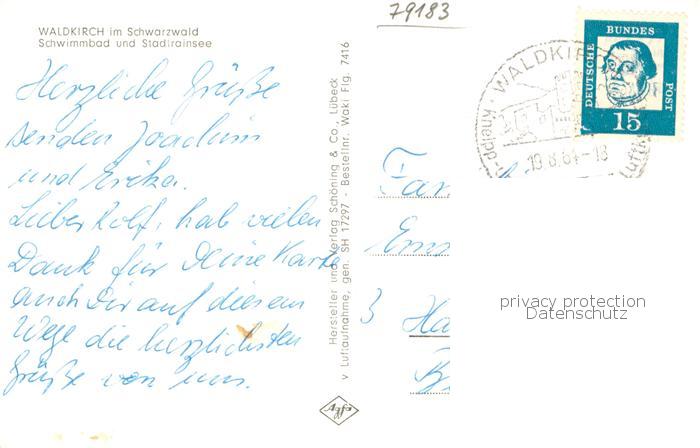 79183
WALDKIRCH im Schwarzwald
Schwimmbad und Stadtrainsee
Herzliche Grüße
senden Joachim
und Erika.
Lieber Rolf, hab vielen
Dank für Deine Karte
auch Dir auf diesem
Wege die herzlichsten
Grüße von uns.
Hersteller und Verlag Schöning & Co., Lübeck
v Luftaufnahme, gen. SH 17297 - Bestellnr. Waki Flg. 7416
Agfa
DEUTSCHE
BUNDES
POST
15
WALDKIR
Kneip
Luftk
19.8.64-18
Fam
Ems
3 Ha
privacy protection
Datenschutz